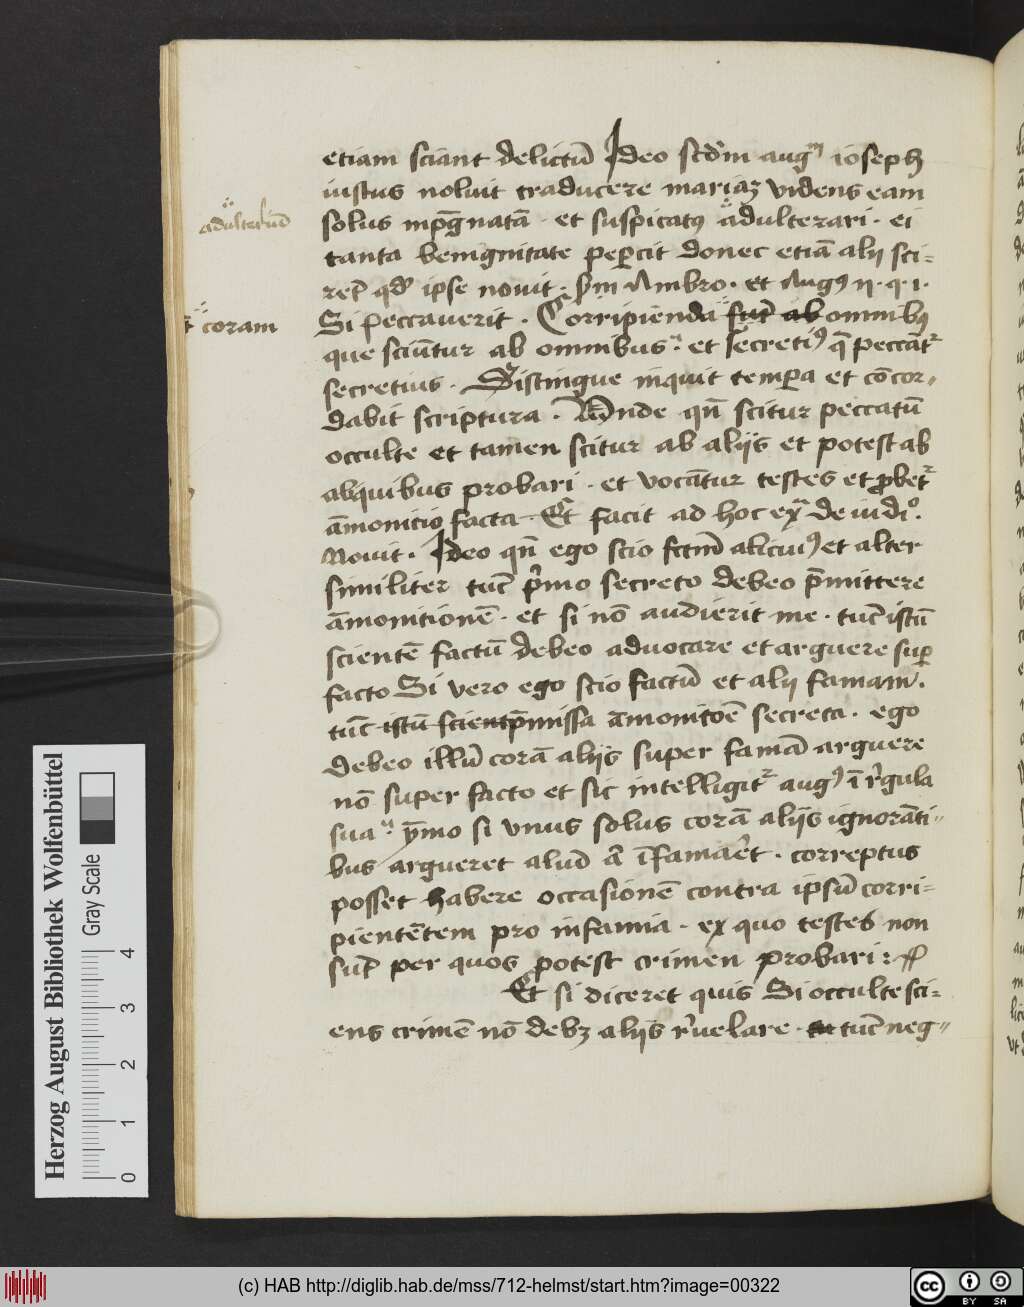 etiam sciant delictū Ideo scdm augm ioseph
iustus noluit traducere mariaꝫ videns eam
adulteriū solus inpgnatā · et suspicatꝰ adulterari · ei
tanta benignitate pepcit donec etiā alij sci=
ret qd ipse nouit · pm Ambro · et Augꝰ ij · q · i ·
coram Si peccauerit · Corripienda sūt ab omnibꝫ
que sciūtur ab omnibus · et secretiꝰ q̄ peccāt
secretius · Distingue inquit tempa et cōcor=
dabit scriptura · Unde qn̄ scitur peccatū
occulte et tamen scitur ab alijs et potest ab
aliquibus probari · et vocātur testes et pbet
āmonitio facta · Et facit ad hoc ex de iudi°.
Nouit · Ideo qn̄ ego scio fctm alicuiꝰ et alter
similiter tūc pmo secreto debeo p̄mittere
āmonitionē · et si nō audierit me · tūc istū
scientē factū debeo aduocare et arguere sup
facto Si vero ego scio factū et alij famam ·
tūc istū scient p̄missa āmonitoē secreta · ego
debeo illū corā alijs super famā arguere
nō super facto et sic intelligit augꝰ ī rgula
sua · ymo si vnus solus corā alijs ignorāti=
bus argueret aliud a īfamaēt · correptus
posset habere occasionē contra ipsū corri=
pientētem pro infamia · ex quo testes non
sūt per quos potest crimen probari :
Et si diceret quis Si occulte sci=
ens crimē nō debꝫ alijs rvelare · tūc neg=
Herzog August Bibliothek Wolfenbüttel
Gray Scale
0 1 2 3 4
(c) HAB http://diglib.hab.de/mss/712-helmst/start.htm?image=00322
cc BY SA